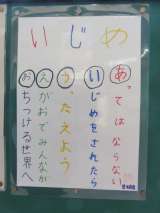 いじめ
あってはならない
いじめをされたら
うったえよう
えがおでみんなが
おちつける世界へ